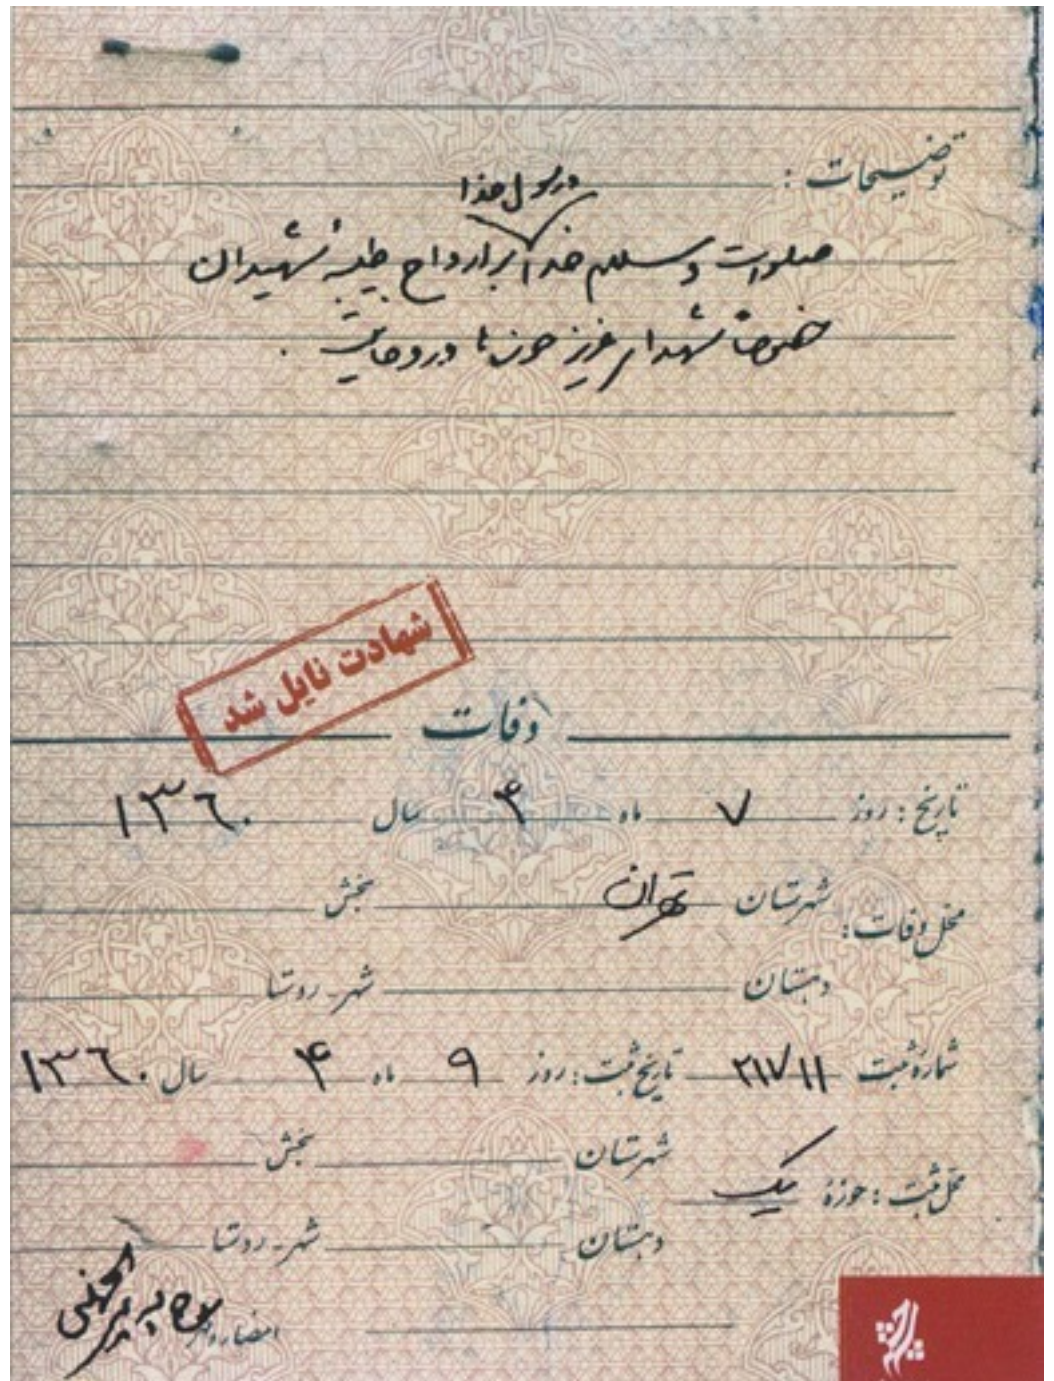 توضیحات :
و رسول خدا
صلوات و سلام خدا بر ارواح طیبه شهیدان
خصوصاً شهدای عزیز خون ما و روحانیت .
شهادت نایل شد
وفات
تاریخ : روز ۷ ماه ۴ سال ۱۳٦۰
محل وفات : شهرستان تهران بخش
دهستان شهر - روستا
شماره ثبت ۲۱۷۱۱ تاریخ ثبت : روز ۹ ماه ۴ سال ۱۳٦۰
محل ثبت : حوزه یک شهرستان بخش
دهستان شهر - روستا
امضاء